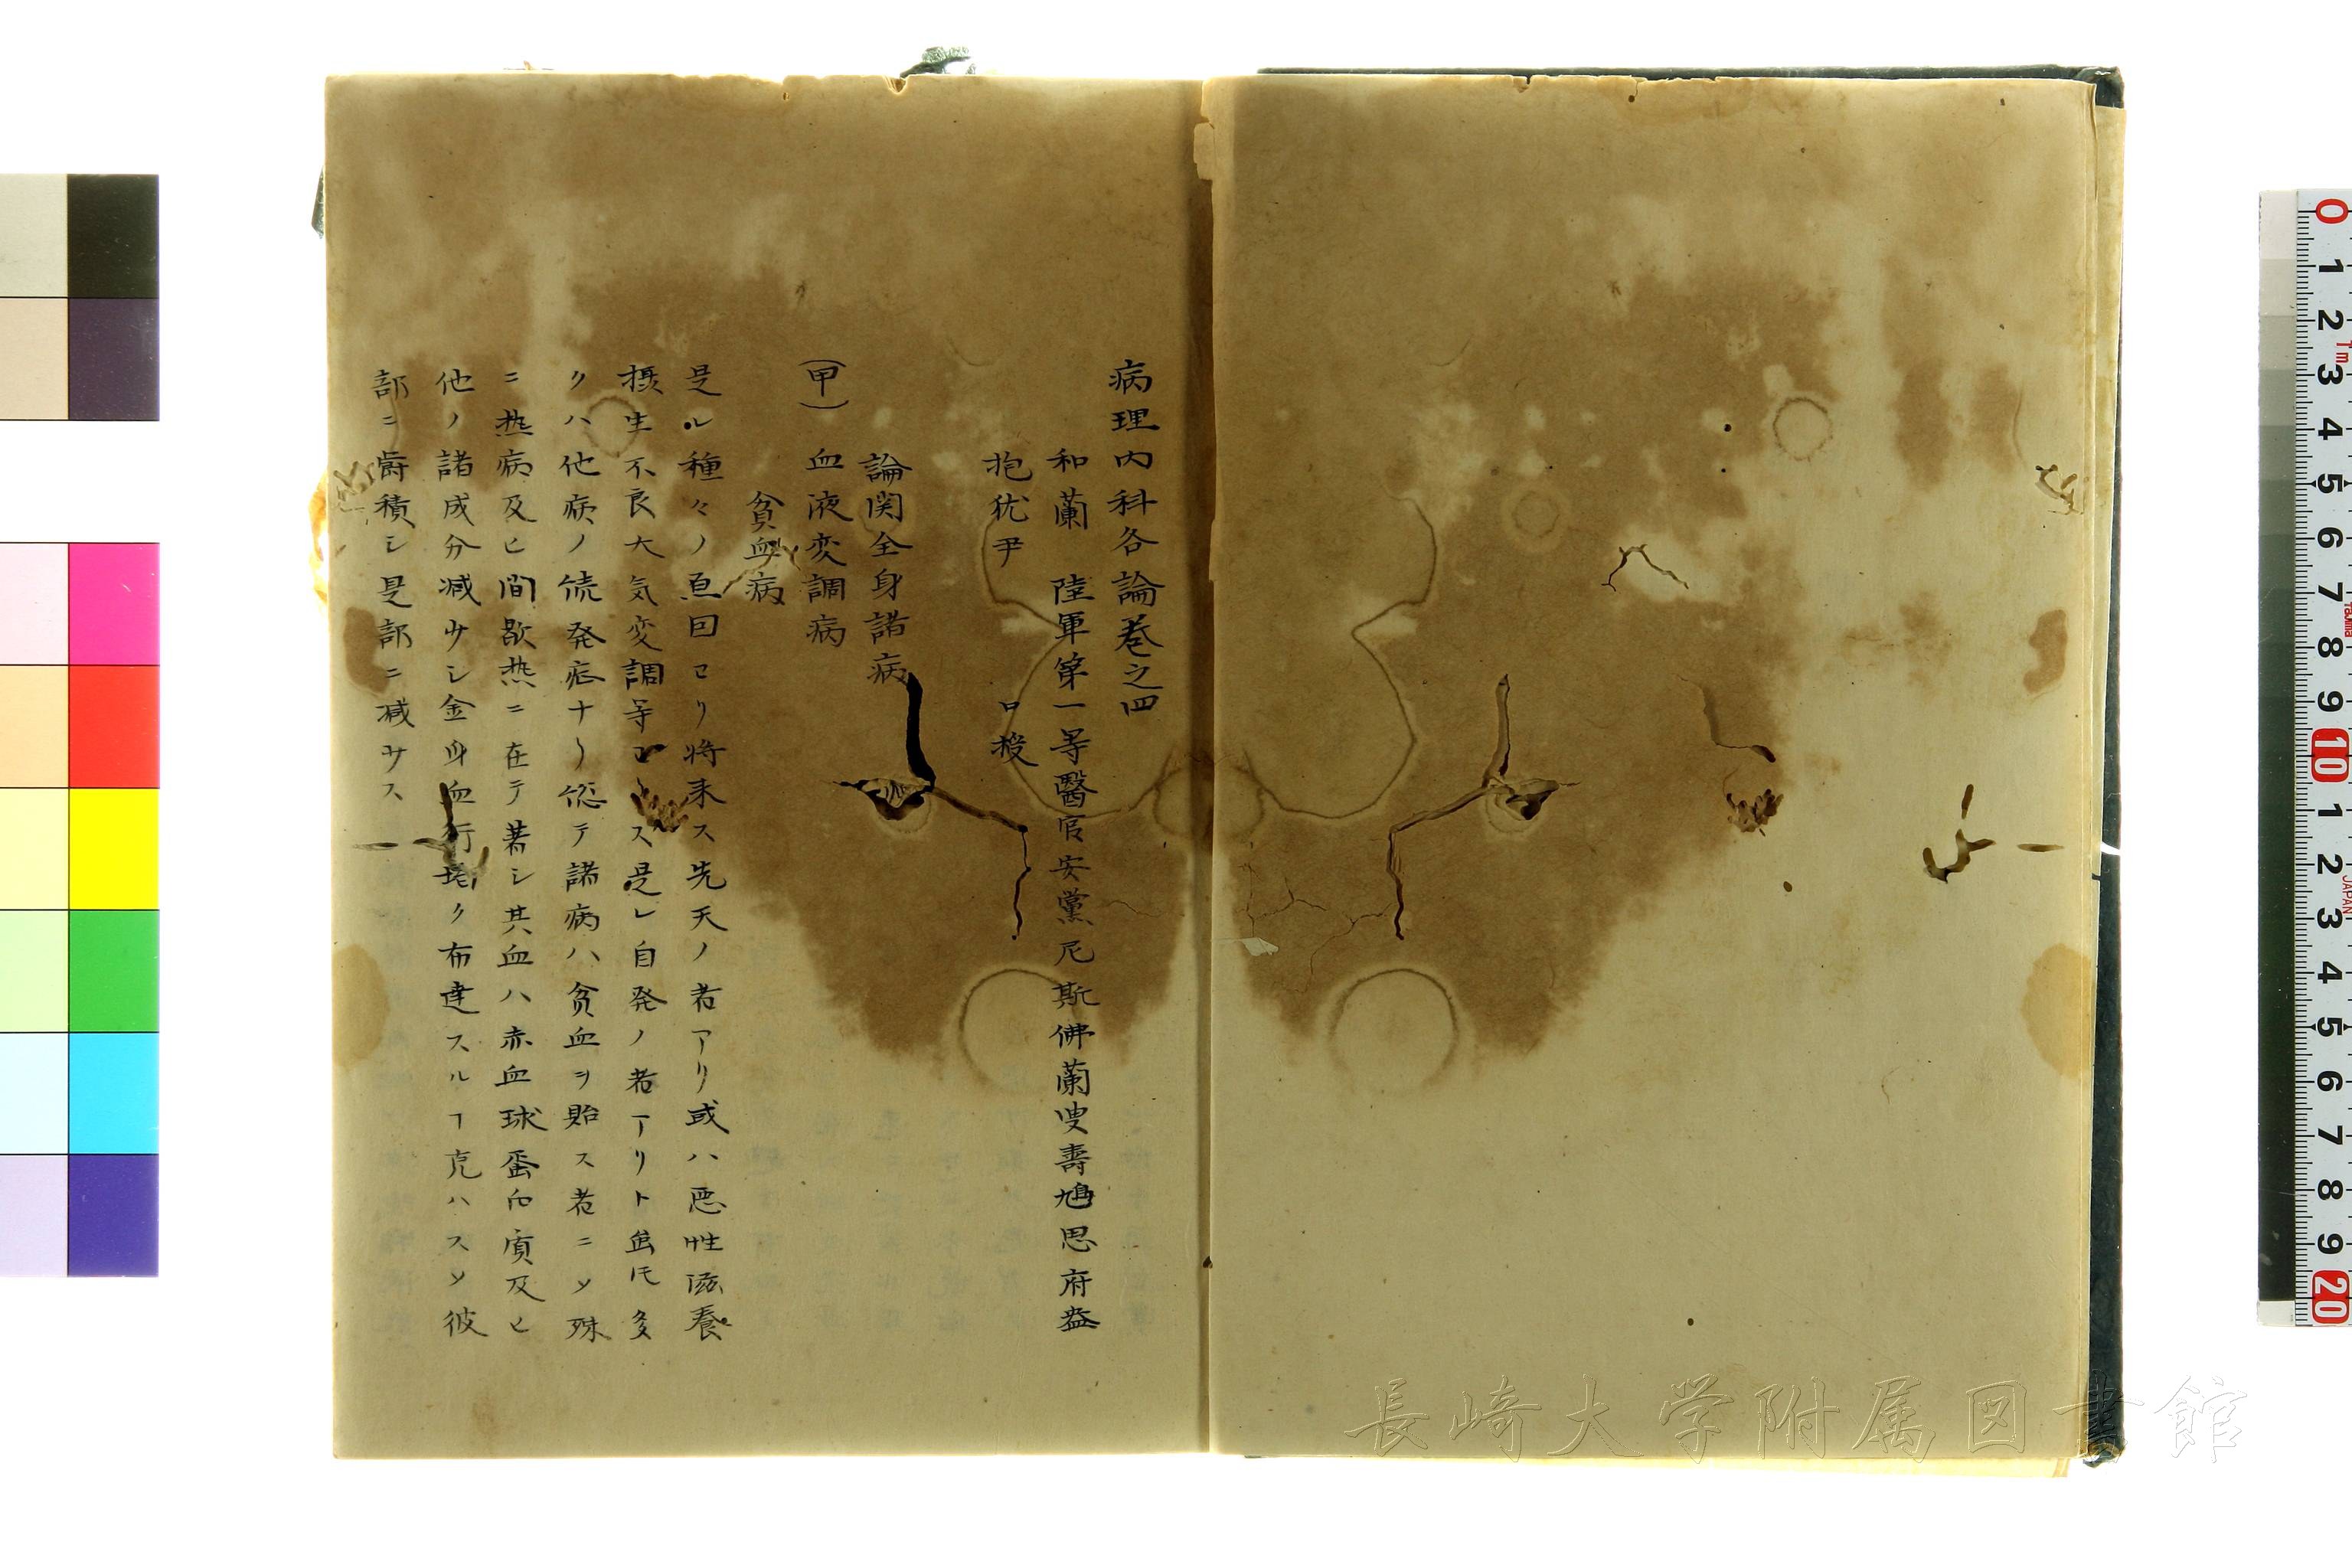 病理内科各論巻之四
和蘭 陸軍第一等醫官安黨尼斯佛蘭叟壽鳩思府盎
抱犹尹 口授
論関全身諸病
(甲) 血液変調病
貧血病
是レ種々ノ原因ヨリ将来ス先天ノ者アリ或ハ悪性滋養
摂生不良大気変調等ヨリス是レ自発ノ者アリト雖𪜈多
クハ他病ノ続発症ナリ総テ諸病ハ貧血ヲ貽ス者ニソ殊
ニ熱病及ヒ間歇熱ニ在テ著シ其血ハ赤血球蛋白質及ヒ
他ノ諸成分減少シ全身血行 ク布達スルヿ克ハスソ彼
部ニ欝積シ是部ニ減少ス
長崎大学附属図書館